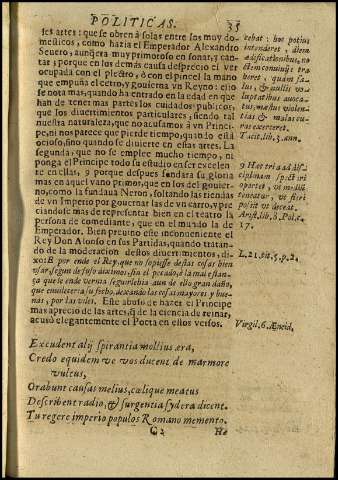 POLITICAS. 35
tes artes: que se obren à solas entre los muy do-
mesticos, como hazia el Emperador Alexandro
Seuero, aunque era muy primoroso en sonar, y can-
tar; porque en los demàs causa desprecio el ver
ocupada con el plectro, ò con el pincel la mano
que empuña el cetro, y gouierna vn Reyno: esto
se nota mas, quando ha entrado en la edad en que
han de tener mas parte los cuidados publicos,
que los diuertimentos particulares, siendo tal
nuestra naturaleza, que no acusamos à vn Princi-
pe, ni nos parece que pierde tiempo, quando està
ocioso, sino quando se diuierte en estas artes. La
segunda, que no se emplee mucho tiempo, ni
ponga el Principe todo su estudio en ser excelen-
te en ellas, 9 porque despues fundarà su gloria
mas en aquel vano primor, que en los del gouier-
no, como la fundaua Neron, soltando las riendas
de vn Imperio por gouernar las de vn carro, y pre-
ciandose mas de representar bien en el teatro la
persona de comediante, que en el mundo la de
Emperador. Bien preuino este inconueniente el
Rey Don Alonso en sus Partidas, quando tratan-
do de la moderacion destos diuertimentos, di-
xo: E por ende el Rey, que no sopiesse destas cosas bien
vsar, segun de suso diximos, sin el pecado, è la mal estan-
ça que le ende vernia seguirseia aun de ello gran daño,
que enuileceria su fecho, dexando las cosas mayores y bue-
nas, por las viles. Este abuso de hazer el Principe
mas aprecio de las artes, que de la ciencia de reinar,
acusò elegantemente el Poeta en estos versos.
Excudent alij spirantia mollius æra,
Credo equidem ve vos ducent de marmore
vultus,
Orabunt causas melius, cælique meatus
Describent radio, & surgentia sydera dicent.
Tu regere imperio populos Romano memento.
He
cebat: hoc potius
intenderet, diem
ædificationibus, no
ctem conuiuijs tra
heret, quàm so-
lus, & nullis vo-
luptatibus auoca-
tus, mæstus violen-
tias & malas cu-
ras exerceret.
Tacit. lib. 3. ann.
9 Hæc tria ad dis-
ciplinam spectari
oportet, vt medi
teneatur, vt fieri
posit vt deceat.
Arist. lib. 8. Pol. c.
17.
L. 21. tit. 5. p. 2.
Virgil. 6. Æneid.